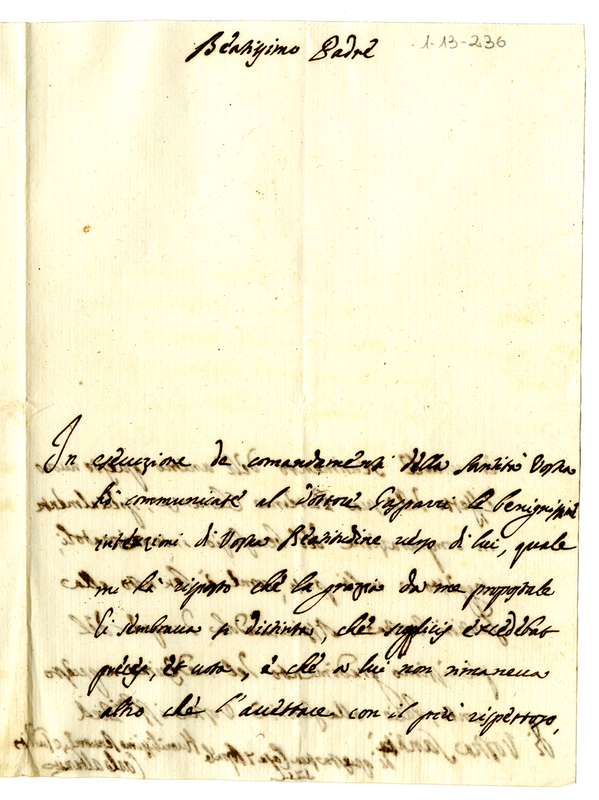 Beatissimo Padre
1-13-236
In esecuzione de comandamenti della Santità Vostra
hò communicate al Dottore Gasparri le benignissime
intenzioni di Vostra Beatitudine verso di lui, quale
mi hà risposto che la grazia da me propostale
li sembrava sì distinta, che supplicis excedebat
preces, et vota, e che a lui non rimaneva
altro che l'accettare con il più rispettoso,